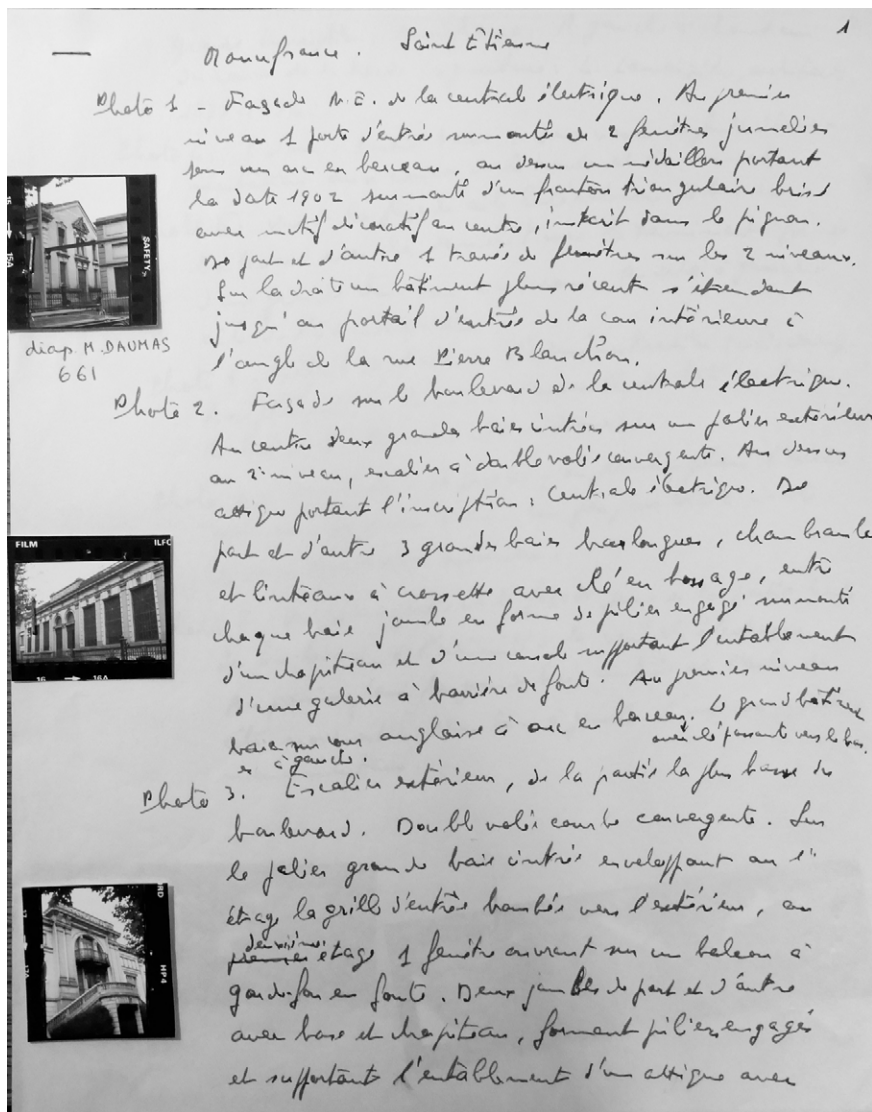 1
Manufrance. Saint Étienne
Photo 1 - Façade N.E. de la central électrique. Au premier
niveau 1 porte d'entrée surmontée de 2 fenêtres jumelées
sous un arc en berceau, au dessus un médaillon portant
la date 1902 surmonté d'un fronton triangulaire brisé
avec motif décoratif au centre, inscrit dans le pignon.
De part et d'autre 1 travée de fenêtres sur les 2 niveaux.
Sur la droite un bâtiment plus récent s'étendant
jusqu'au portail d'entrée de la cour intérieure à
l'angle de la rue Pierre Blanchon.
SAFETY
15A
diap. M. DAUMAS
661
Photo 2. Façade sur le boulevard de la centrale électrique.
Au centre deux grandes baies cintrées sur un palier extérieur
au 2e niveau, escalier à double volée convergente. Au dessus
attique portant l'inscription : Centrale électrique. De
part et d'autre 3 grandes baies barlongues, chambranle
et linteaux à crossette avec clé en bossage, entre
chaque baie jambe en forme de pilier engagé surmonté
d'un chapiteau et d'une console supportant l'entablement
d'une galerie à barrière de fonte. Au premier niveau
baies sur cour anglaise à arc en berceau. Le grand bâtiment
avec clé passante vers le bas.
est à gauche.
FILM
ILFO
16
16A
Photo 3. Escalier extérieur, de la partie la plus basse du
boulevard. Double volée courbe convergente. Sur
le palier grande baie cintrée enveloppant au 1er
étage la grille d'entrée bombée vers l'extérieur, au
deuxième
premier étage 1 fenêtre ouvrant sur un balcon à
garde-fou en fonte. Deux jambes de part et d'autre
avec base et chapiteau, forment piliers engagés
et supportant l'entablement d'un attique avec
RD
HP4
17A